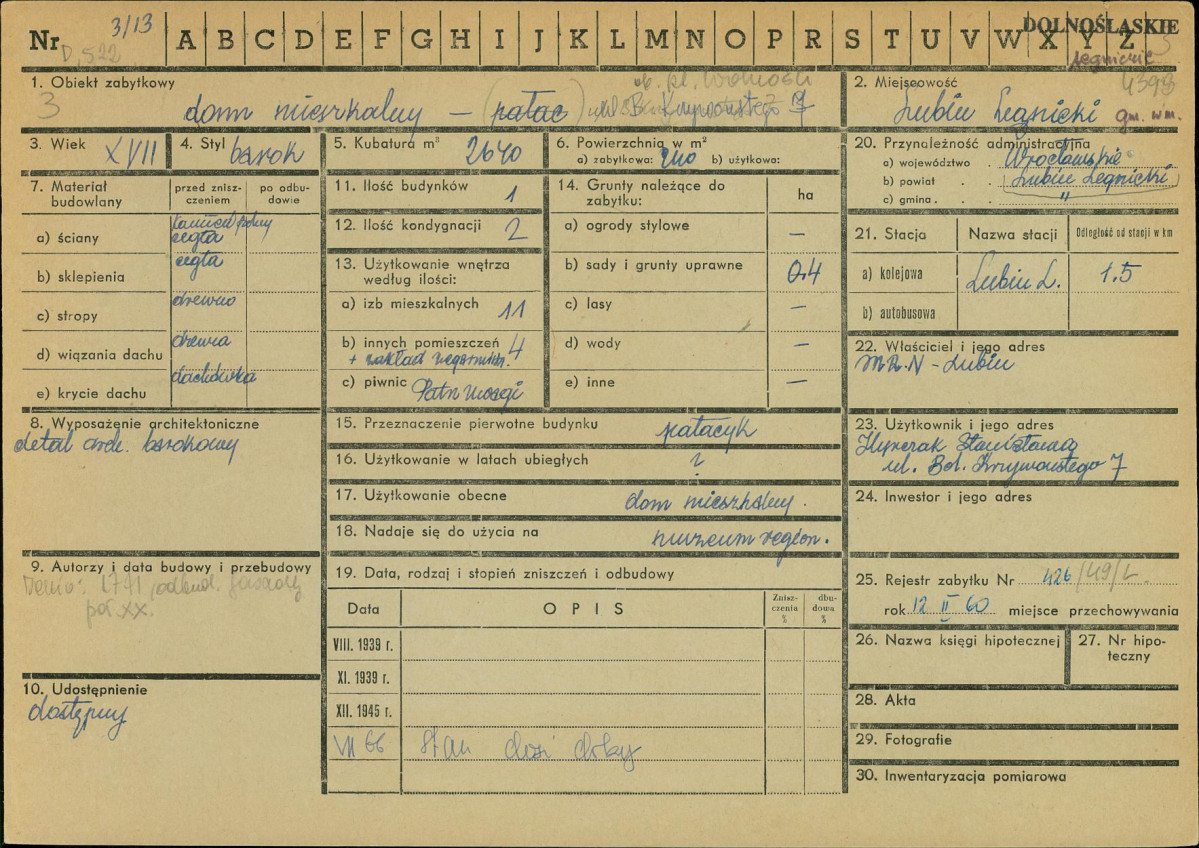 Nr 3/13 A B C D E F G H I J K L M N O P R S T U V W X Y Z DOLNOŚLĄSKIE
D, 522
1. Obiekt zabytkowy
3
ob. pl. Wolności
dom mieszkalny — (pałac) ul. B. Krzywoustego 7
2. Miejscowość
4393
Lubin Legnicki gm. w m.
3. Wiek XVII
4. Styl barok
5. Kubatura m³ 2640
6. Powierzchnia w m²
a) zabytkowa: 240 b) użytkowa:
20. Przynależność administracyjna
a) województwo . Wrocławskie
b) powiat . . Lubin Legnicki
c) gmina . . "
7. Materiał budowlany
przed zniszczeniem
po odbudowie
a) ściany kamień polny cegła
b) sklepienia cegła
c) stropy drewno
d) wiązania dachu drewno
e) krycie dachu dachówka
11. Ilość budynków 1
12. Ilość kondygnacji 2
13. Użytkowanie wnętrza według ilości:
a) izb mieszkalnych 11
b) innych pomieszczeń 4
+ zakład zegarmistrz.
c) piwnic
14. Grunty należące do zabytku:
ha
a) ogrody stylowe —
b) sady i grunty uprawne 0.4
c) lasy —
d) wody —
e) inne —
21. Stacja Nazwa stacji Odległość od stacji w km
a) kolejowa Lubin L. 1.5
b) autobusowa
22. Właściciel i jego adres
M.R.N - Lubin
8. Wyposażenie architektoniczne
detal arch. barokowy
15. Przeznaczenie pierwotne budynku pałacyk
16. Użytkowanie w latach ubiegłych ?
17. Użytkowanie obecne dom mieszkalny.
18. Nadaje się do użycia na muzeum region.
23. Użytkownik i jego adres
Stanisława
ul. Bol. Krzywoustego 7
24. Inwestor i jego adres
9. Autorzy i data budowy i przebudowy
1741, odbud. fasady
poł. XX.
19. Data, rodzaj i stopień zniszczeń i odbudowy
Data OPIS Zniszczenia % dbudowa %
VIII. 1939 r.
XI. 1939 r.
XII. 1945 r.
VII 66 stan dość dobry
25. Rejestr zabytku Nr 426/49/L
rok 12 II 60 miejsce przechowywania
26. Nazwa księgi hipotecznej
27. Nr hipoteczny
10. Udostępnienie
dostępny
28. Akta
29. Fotografie
30. Inwentaryzacja pomiarowa